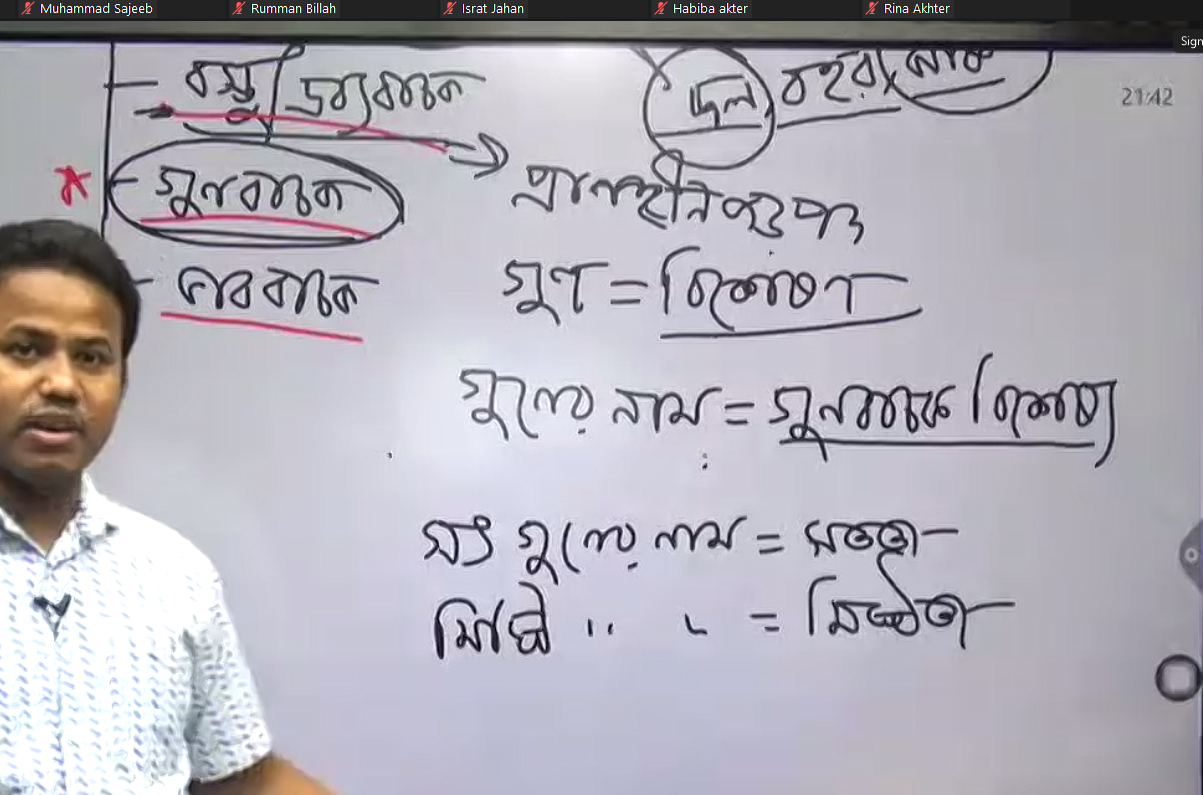 Muhammad Sajeeb Rumman Billah Israt Jahan Habiba akter Rina Akhter
Sign
21:42
বস্তু/দ্রব্যবাচক
দল, বহর,
গুনবাচক
প্রানহীন
ভাববাচক
গুণ = বিশেষণ
গুনের নাম = গুনবাচক বিশেষ্য
সৎ গুনের নাম = সততা
মিষ্টি " " = মিষ্টতা